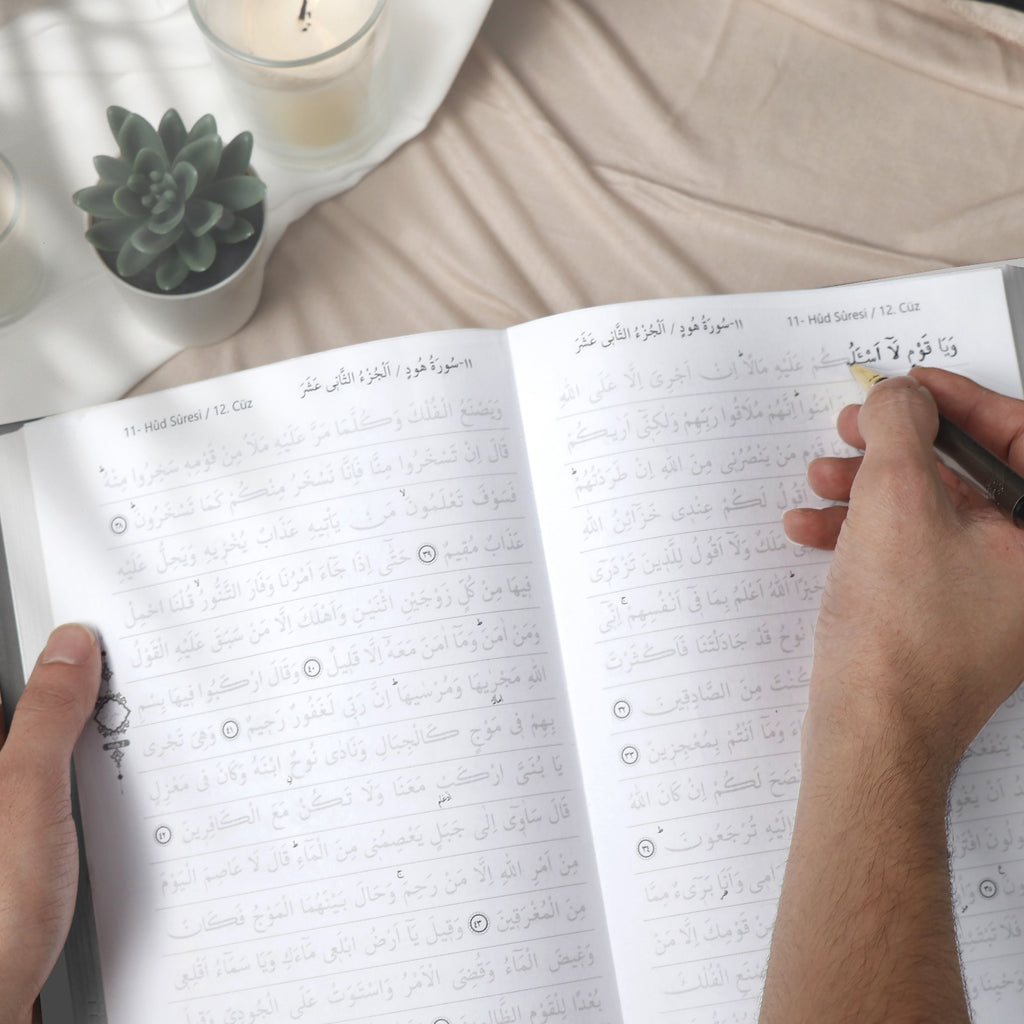 ١١-سُورَةُ هُودٍ / اَلْجُزْءُ الثَّانِى عَشَرَ 11- Hûd Sûresi / 12. Cüz
وَيَا قَوْمِ لَآ اَسْـَٔلُكُمْ عَلَيْهِ مَالًاۜ اِنْ اَجْرِىَ اِلَّا عَلَى اللّٰهِ
اٰمَنُواۜ اِنَّهُمْ مُلَاقُوا رَبِّهِمْ وَلٰكِنّٖى اَرٰيكُمْ
قَوْمِ مَنْ يَنْصُرُنٖى مِنَ اللّٰهِ اِنْ طَرَدْتُهُمْۜ
اَقُولُ لَكُمْ عِنْدٖى خَزَٓائِنُ اللّٰهِ
مَلَكٌ وَلَٓا اَقُولُ لِلَّذٖينَ تَزْدَرٖٓى
خَيْرًاۜ اَللّٰهُ اَعْلَمُ بِمَا فٖٓى اَنْفُسِهِمْۚ اِنّٖٓى
نُوحُ قَدْ جَادَلْتَنَا فَاَكْثَرْتَ
كُنْتَ مِنَ الصَّادِقٖينَ ٣٢
وَمَٓا اَنْتُمْ بِمُعْجِزٖينَ ٣٣
لَكُمْ اِنْ كَانَ اللّٰهُ
تُرْجَعُونَۜ ٣٤
وَاَنَا۬ بَرٖٓىءٌ مِمَّا
قَوْمِكَ اِلَّا مَنْ
الْفُلْكَ
١١-سُورَةُ هُودٍ / اَلْجُزْءُ الثَّانِى عَشَرَ 11- Hûd Sûresi / 12. Cüz
وَيَصْنَعُ الْفُلْكَ وَكُلَّمَا مَرَّ عَلَيْهِ مَلَاٌ مِنْ قَوْمِهٖ سَخِرُوا مِنْهُۜ
قَالَ اِنْ تَسْخَرُوا مِنَّا فَاِنَّا نَسْخَرُ مِنْكُمْ كَمَا تَسْخَرُونَۜ ٣٨
فَسَوْفَ تَعْلَمُونَۙ مَنْ يَأْتٖيهِ عَذَابٌ يُخْزٖيهِ وَيَحِلُّ عَلَيْهِ
عَذَابٌ مُقٖيمٌ ٣٩ حَتّٰٓى اِذَا جَٓاءَ اَمْرُنَا وَفَارَ التَّنُّورُۙ قُلْنَا احْمِلْ
فٖيهَا مِنْ كُلٍّ زَوْجَيْنِ اثْنَيْنِ وَاَهْلَكَ اِلَّا مَنْ سَبَقَ عَلَيْهِ الْقَوْلُ
وَمَنْ اٰمَنَۜ وَمَٓا اٰمَنَ مَعَهُٓ اِلَّا قَلٖيلٌ ٤٠ وَقَالَ ارْكَبُوا فٖيهَا بِسْمِ
اللّٰهِ مَجْرٰۭۙيهَا وَمُرْسٰيهَاۜ اِنَّ رَبّٖى لَغَفُورٌ رَحٖيمٌ ٤١ وَهِىَ تَجْرٖى
بِهِمْ فٖى مَوْجٍ كَالْجِبَالِ وَنَادٰى نُوحٌ ابْنَهُ وَكَانَ فٖى مَعْزِلٍ
يَا بُنَىَّ ارْكَبْ مَعَنَا وَلَا تَكُنْ مَعَ الْكَافِرٖينَ ٤٢
قَالَ سَاٰوٖٓى اِلٰى جَبَلٍ يَعْصِمُنٖى مِنَ الْمَٓاءِۜ قَالَ لَا عَاصِمَ الْيَوْمَ
مِنْ اَمْرِ اللّٰهِ اِلَّا مَنْ رَحِمَۚ وَحَالَ بَيْنَهُمَا الْمَوْجُ فَكَانَ
مِنَ الْمُغْرَقٖينَ ٤٣ وَقٖيلَ يَٓا اَرْضُ ابْلَعٖى مَٓاءَكِ وَيَا سَمَٓاءُ اَقْلِعٖى
وَغٖيضَ الْمَٓاءُ وَقُضِىَ الْاَمْرُ وَاسْتَوَتْ عَلَى الْجُودِىِّ وَقٖيلَ
بُعْدًا لِلْقَوْمِ